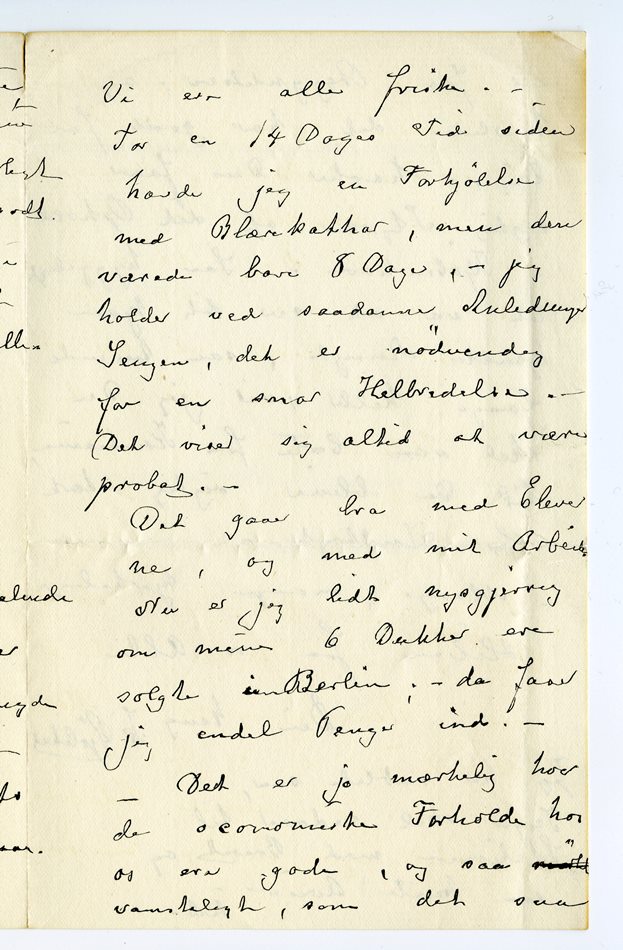 Vi ere alle friske. –
For en 14 Dages Tid siden
havde jeg en Forkjölelse
med Blærekathar, men den
varede bare 8 Dage, – jeg
holder ved saadanne Anledninger
Sengen, det er nödvendig
for en snar Helbredelse. –
Det viser sig altid at være
probat. –
Det gaar bra med Elever
ne, og med mit Arbeide
Nu er jeg lidt nysgjerrig
om mine 6 Dukker ere
solgte i Berlin; – da faar
jeg endel Penge ind. –
– Det er jo mærkelig hvor
de oconomiske Forholde hos
os ere gode, og saa
vanskeligt, som det saa